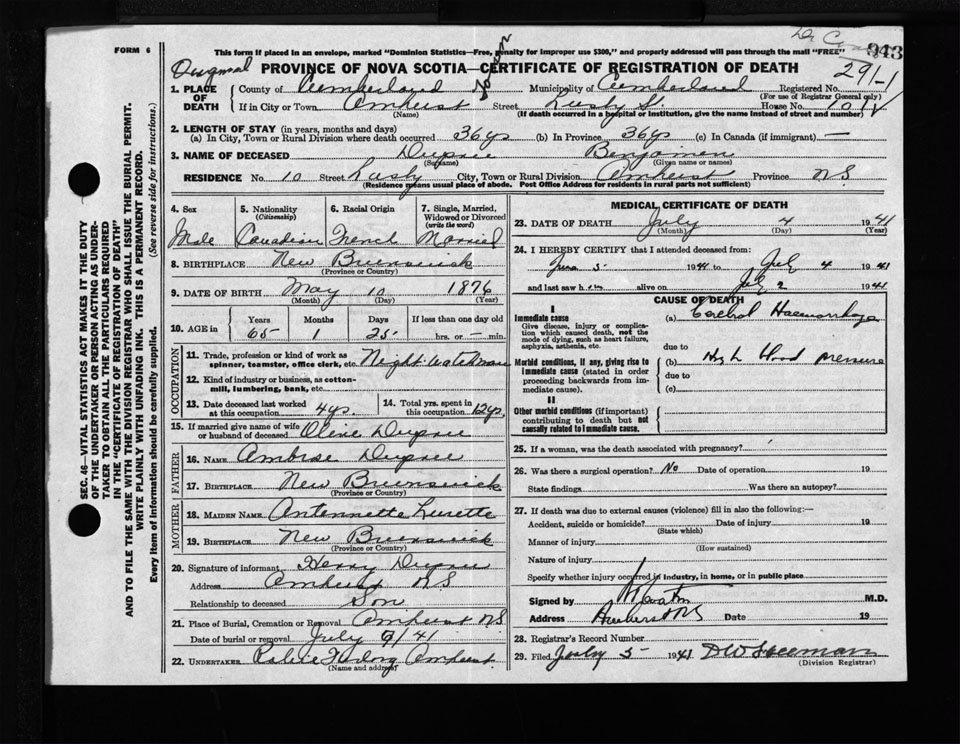 FORM 6
This form if placed in an envelope, marked "Dominion Statistics—Free, penalty for improper use $300," and properly addressed will pass through the mail "FREE"
943
PROVINCE OF NOVA SCOTIA—CERTIFICATE OF REGISTRATION OF DEATH
29/-1
1. PLACE OF DEATH County of Cumberland Municipality of Cumberland Registered No.
(For use of Registrar General only)
If in City or Town Amherst Street Lusby St. House No. 10
(Name) (If death occurred in a hospital or institution, give the name instead of street and number)
2. LENGTH OF STAY (in years, months and days)
(a) In City, Town or Rural Division where death occurred 36ys (b) In Province 36ys (c) In Canada (if immigrant) —
3. NAME OF DECEASED Dupuie Benjamen
(Surname) (Given name or names)
RESIDENCE No. 10 Street City, Town or Rural Division Amherst Province N.S
(Residence means usual place of abode. Post Office Address for residents in rural parts not sufficient)
4. Sex 5. Nationality (Citizenship) 6. Racial Origin 7. Single, Married, Widowed or Divorced (write the word)
Male Canadian French Married
8. BIRTHPLACE New Brunswick
(Province or Country)
9. DATE OF BIRTH May 10 1876
(Month) (Day) (Year)
10. AGE in Years Months Days If less than one day old
65 1 25 hrs. or min.
OCCUPATION
11. Trade, profession or kind of work as spinner, teamster, office clerk, etc. Night watchman
12. Kind of industry or business, as cotton-mill, lumbering, bank, etc.
13. Date deceased last worked at this occupation 4ys. 14. Total yrs. spent in this occupation 12ys.
15. If married give name of wife or husband of deceased Olive Dupuie
FATHER
16. NAME Ambrose Dupuie
17. BIRTHPLACE New Brunswick
(Province or Country)
MOTHER
18. MAIDEN NAME Antennette
19. BIRTHPLACE New Brunswick
(Province or Country)
20. Signature of informant Henry Dupuie
Address Amherst N.S
Relationship to deceased Son
21. Place of Burial, Cremation or Removal Amherst N.S
Date of burial or removal July 9/41
22. UNDERTAKER Amherst
(Name and address)
MEDICAL CERTIFICATE OF DEATH
23. DATE OF DEATH July 4 1941
(Month) (Day) (Year)
24. I HEREBY CERTIFY that I attended deceased from:
June 5 1941 to July 4 1941
and last saw h im alive on July 2 1941
CAUSE OF DEATH
I
Immediate cause (a) Cerebral Haemorrhage
Give disease, injury or complication which caused death, not the mode of dying, such as heart failure, asphyxia, asthenia, etc.
due to
Morbid conditions, if any, giving rise to immediate cause (stated in order proceeding backwards from immediate cause). (b) High blood pressure
due to
(c)
II
Other morbid conditions (if important) contributing to death but not causally related to immediate cause.
25. If a woman, was the death associated with pregnancy?
26. Was there a surgical operation? No Date of operation 19
State findings Was there an autopsy?
27. If death was due to external causes (violence) fill in also the following:—
Accident, suicide or homicide? Date of injury 19
(State which)
Manner of injury
(How sustained)
Nature of injury
Specify whether injury occurred in industry, in home, or in public place
Signed by M.D.
Address Amherst N.S Date 19
28. Registrar's Record Number
29. Filed July 5 - 1941
(Division Registrar)
SEC. 46—VITAL STATISTICS ACT MAKES IT THE DUTY
OF THE UNDERTAKER OR PERSON ACTING AS UNDERTAKER
TO OBTAIN ALL THE PARTICULARS REQUIRED
IN THE "CERTIFICATE OF REGISTRATION OF DEATH"
AND TO FILE THE SAME WITH THE DIVISION REGISTRAR WHO SHALL ISSUE THE BURIAL PERMIT.
WRITE PLAINLY WITH UNFADING INK. THIS IS A PERMANENT RECORD.
Every item of Information should be carefully supplied. (See reverse side for instructions.)